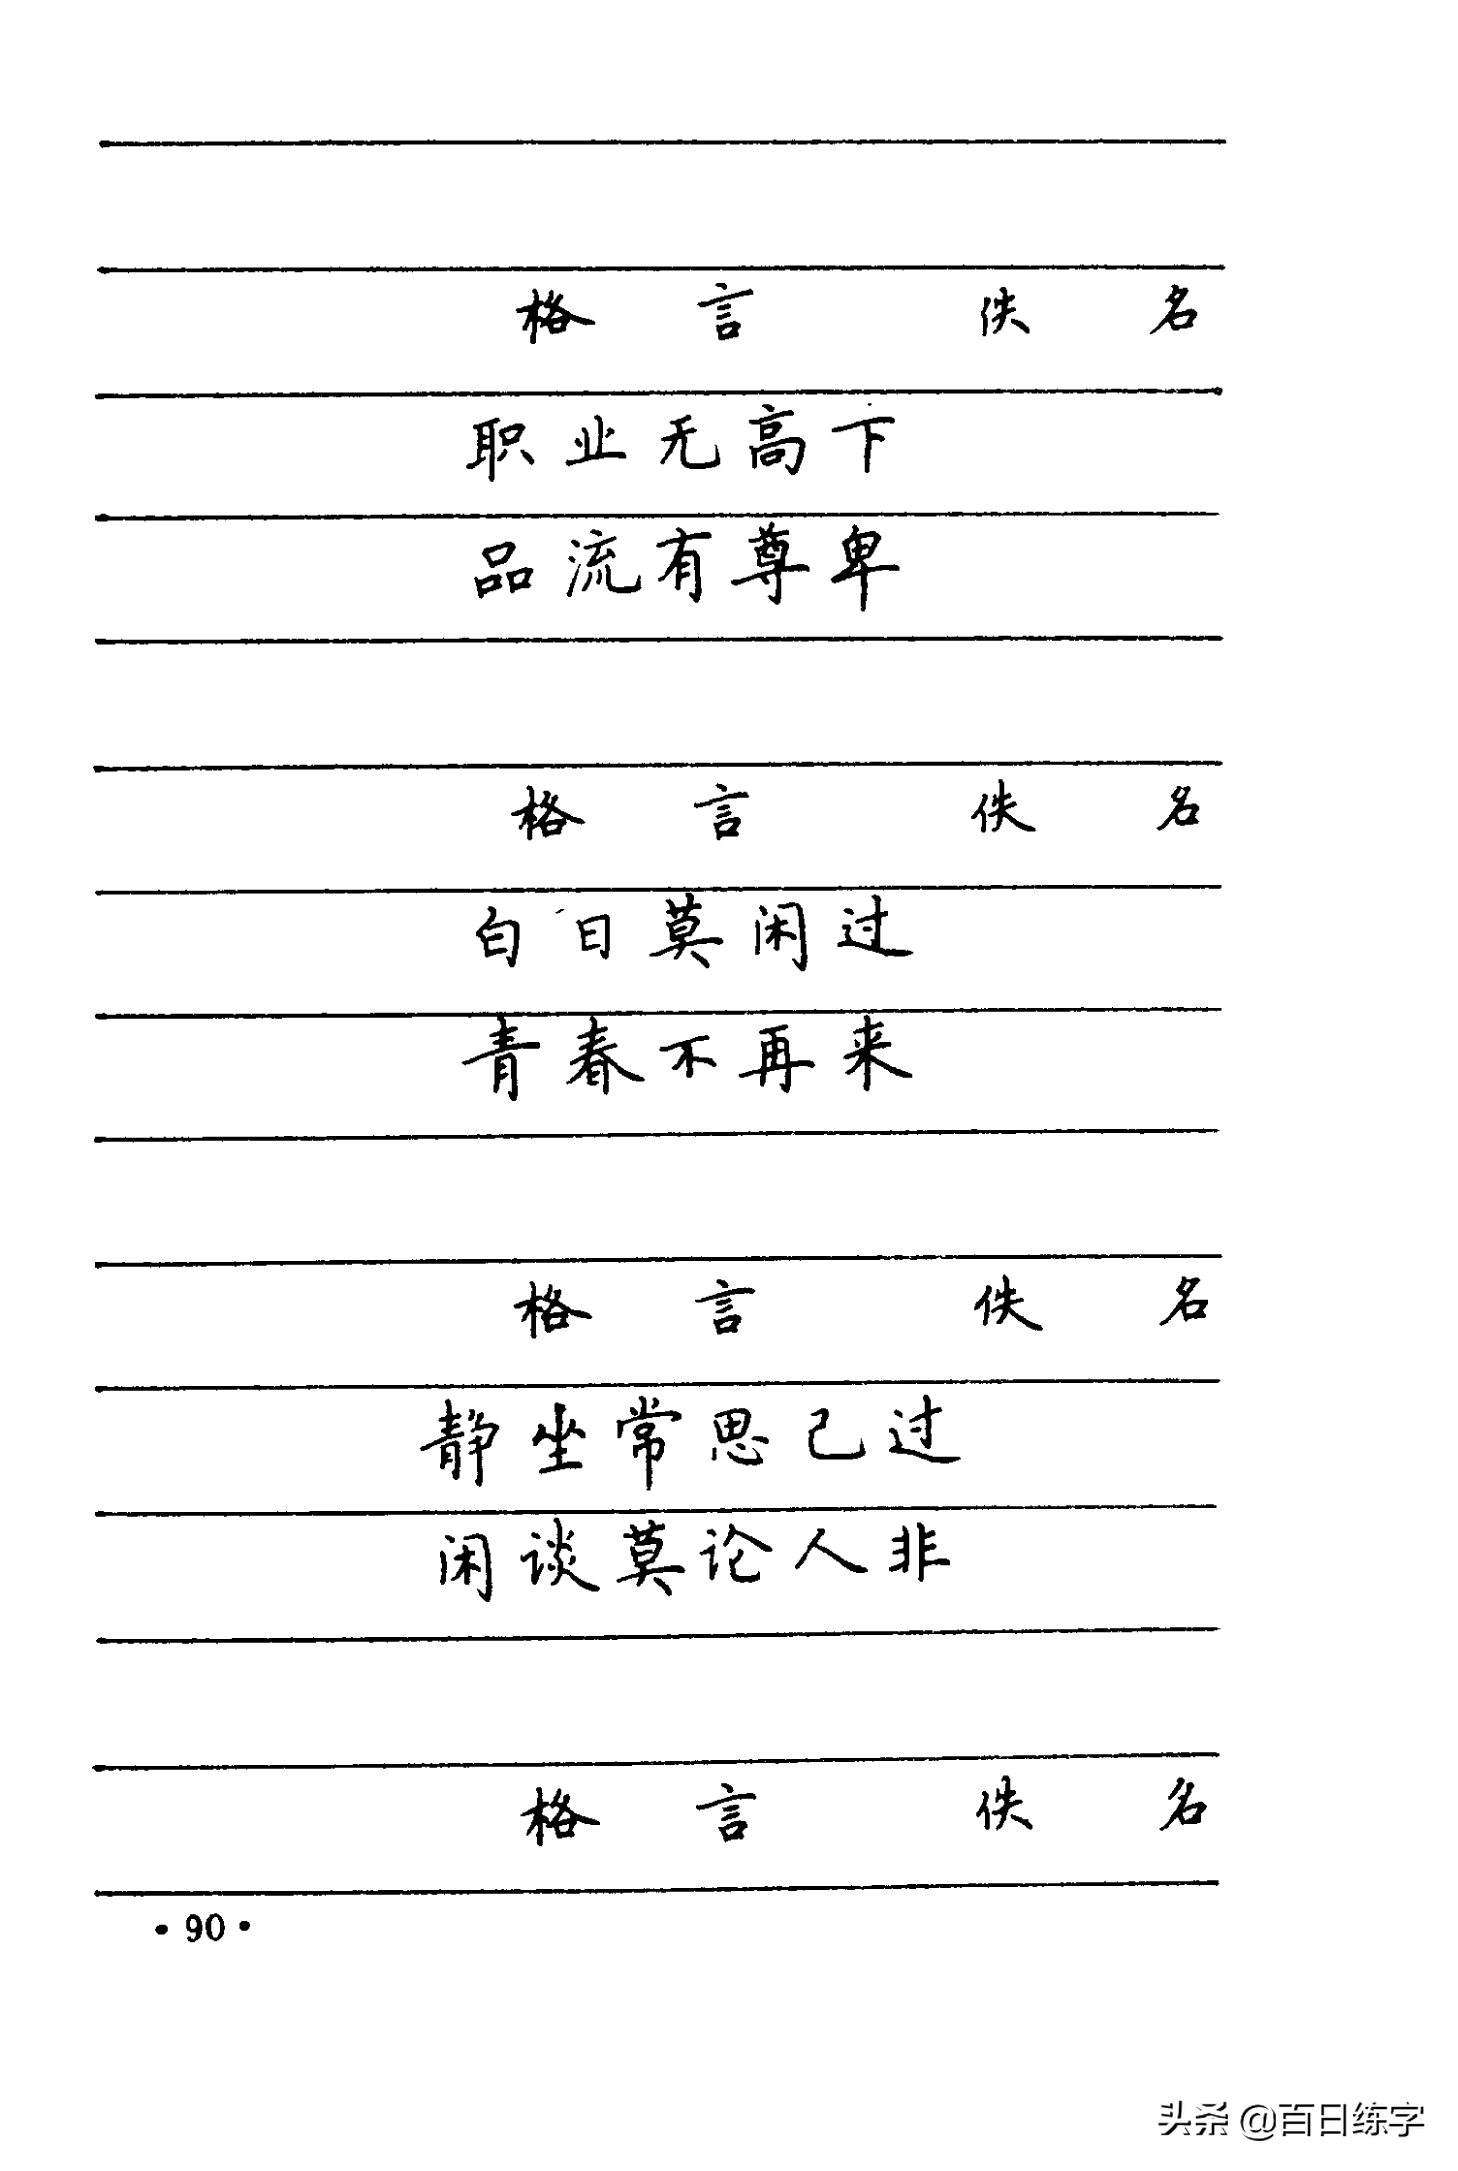 格言 佚名
职业无高下
品流有尊卑
格言 佚名
白日莫闲过
青春不再来
格言 佚名
静坐常思己过
闲谈莫论人非
格言 佚名
·90·
头条 @百日练字